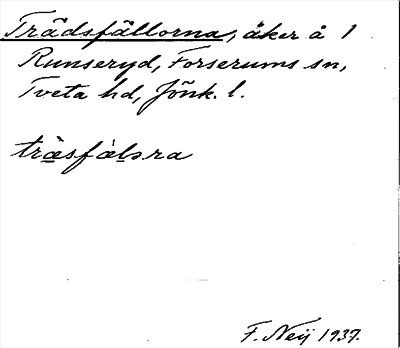 Trädsfällorna, åker å 1
Runseryd, Forserums sn,
Tveta hd, Jönk. l.
trä̀sfälɘra
F. Neij 1937.